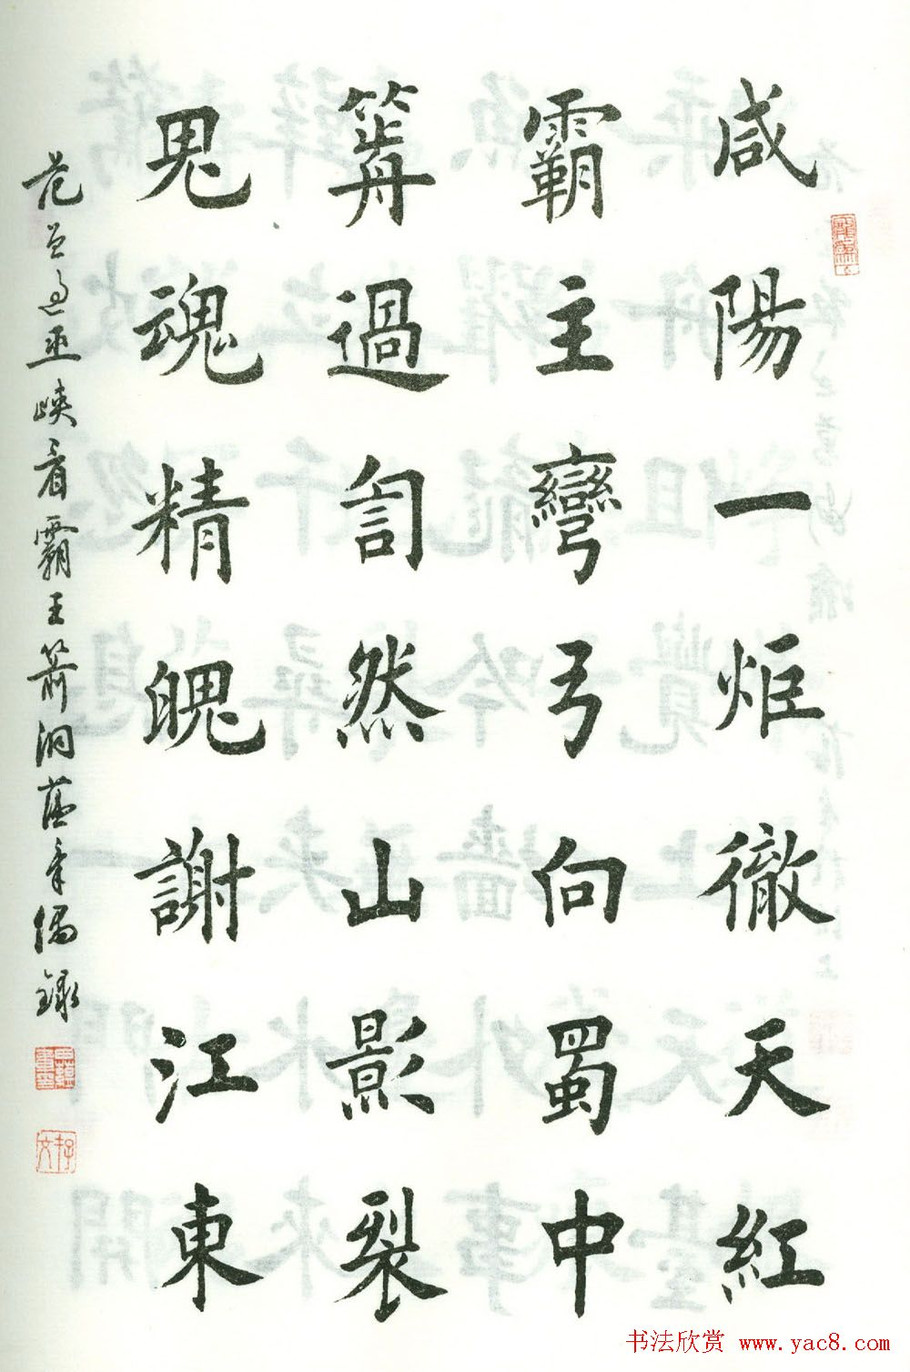 咸陽一炬徹天紅
霸主彎弓向蜀中
箭過訇然山影裂
鬼魂精魄謝江東
范曾過巫峽看霸王箭洞藴章偶錄
书法欣赏 www.yac8.com